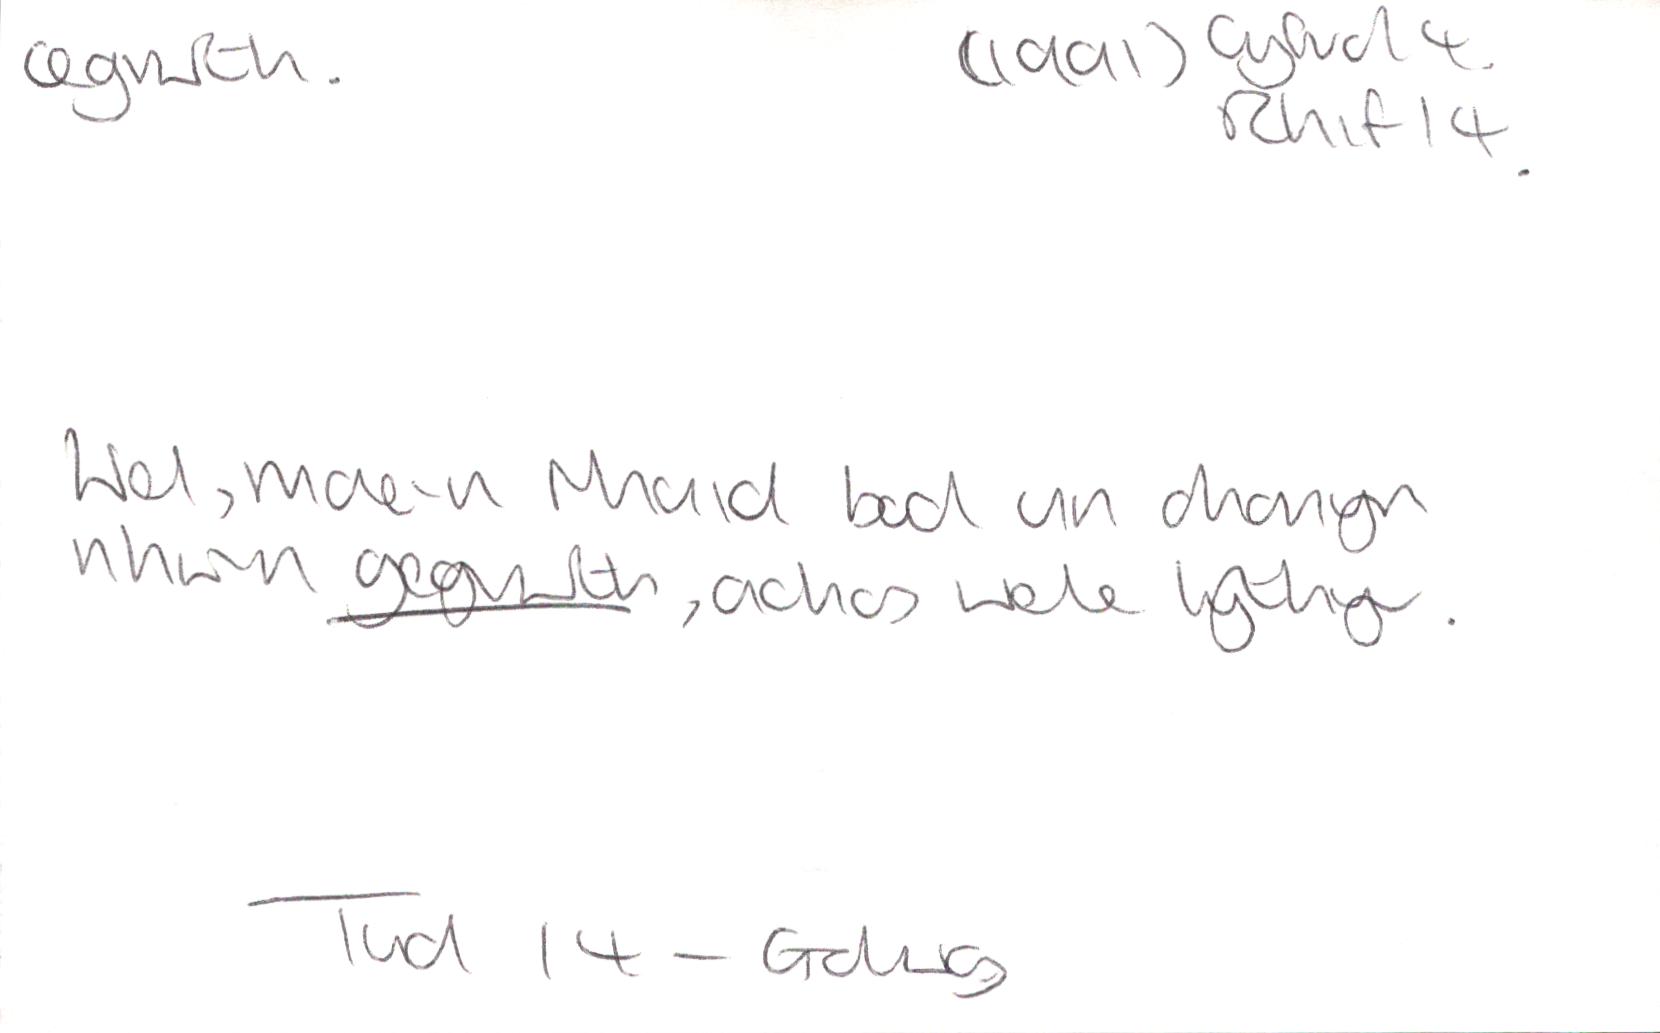 cegrwth.
(1991) Cyfrol 4.
Rhif 14.
Wel, mae-n Rhaid bod un
nhw'n gegrwth, achos wele
Tud 14 - Golwg